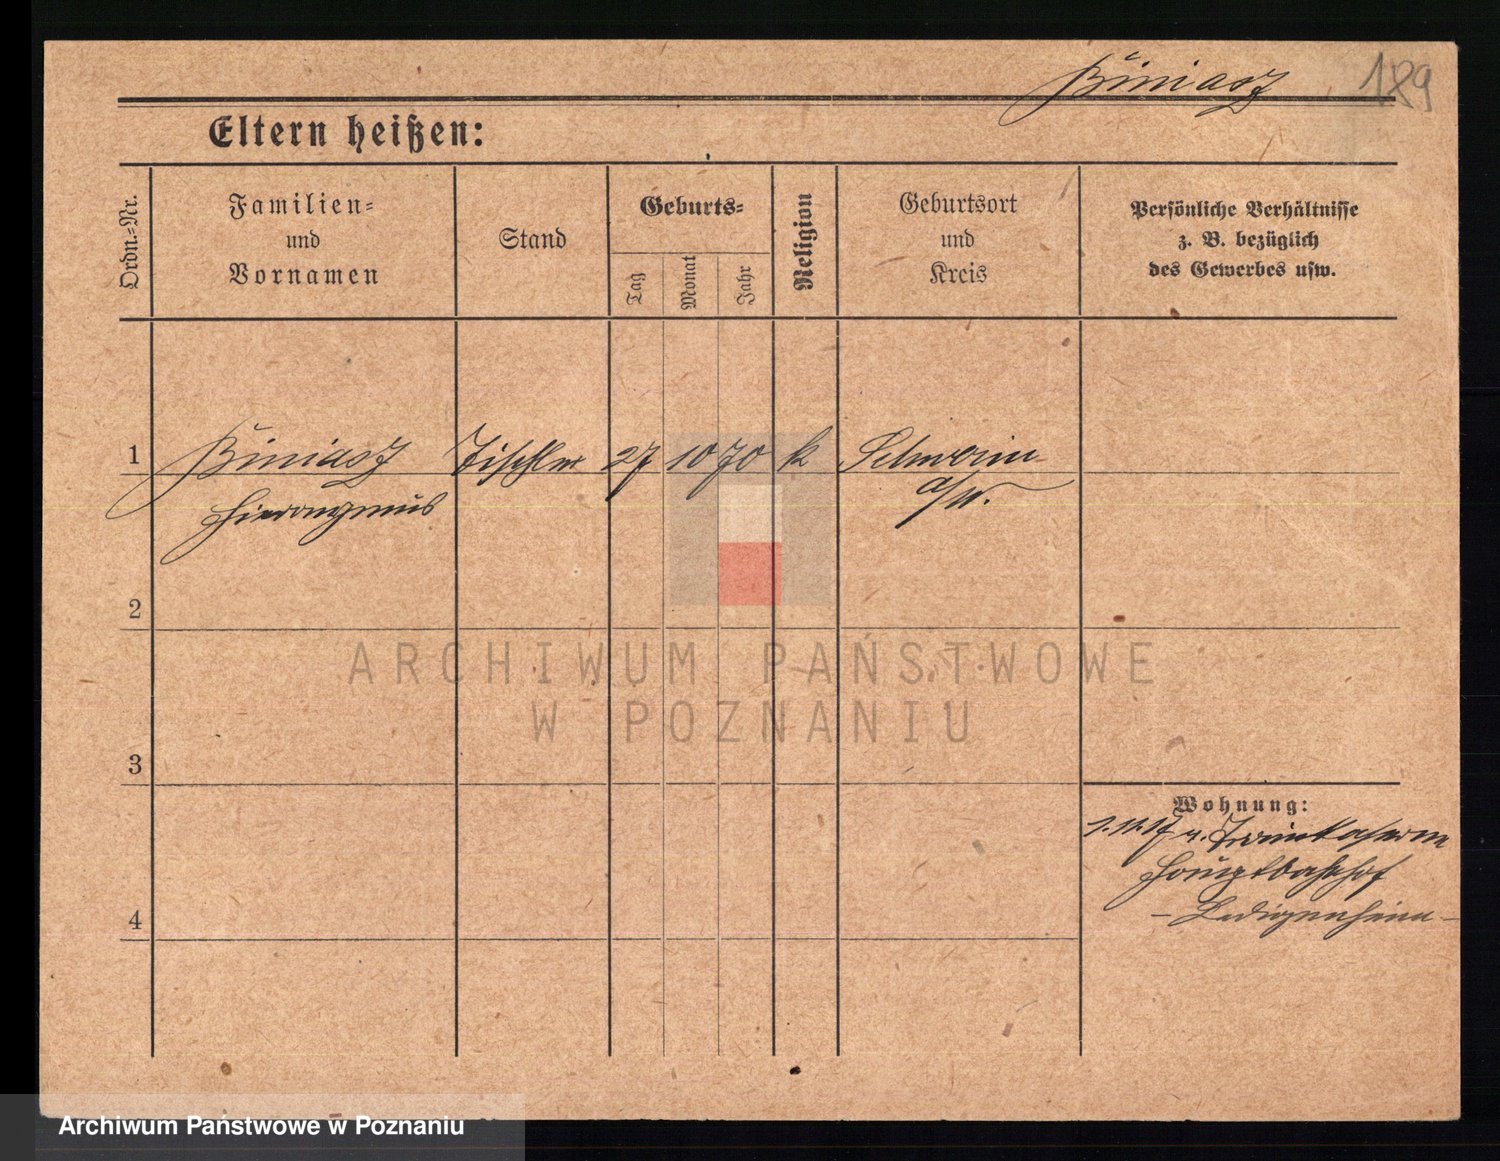 Biniasz 189
Eltern heißen:
Ordn.-Nr.
Familien-
und
Vornamen
Stand
Geburts-
Tag
Monat
Jahr
Religion
Geburtsort
und
Kreis
Persönliche Verhältnisse
z. B. bezüglich
des Gewerbes usw.
1 Biniasz Tischler 27 10 70 k Schwerin
Hieronymus a/W.
2
3
4
Wohnung:
1.11.17 v.
Hauptbahnhof
- Ledigenheim -
ARCHIWUM PAŃSTWOWE
W POZNANIU
Archiwum Państwowe w Poznaniu